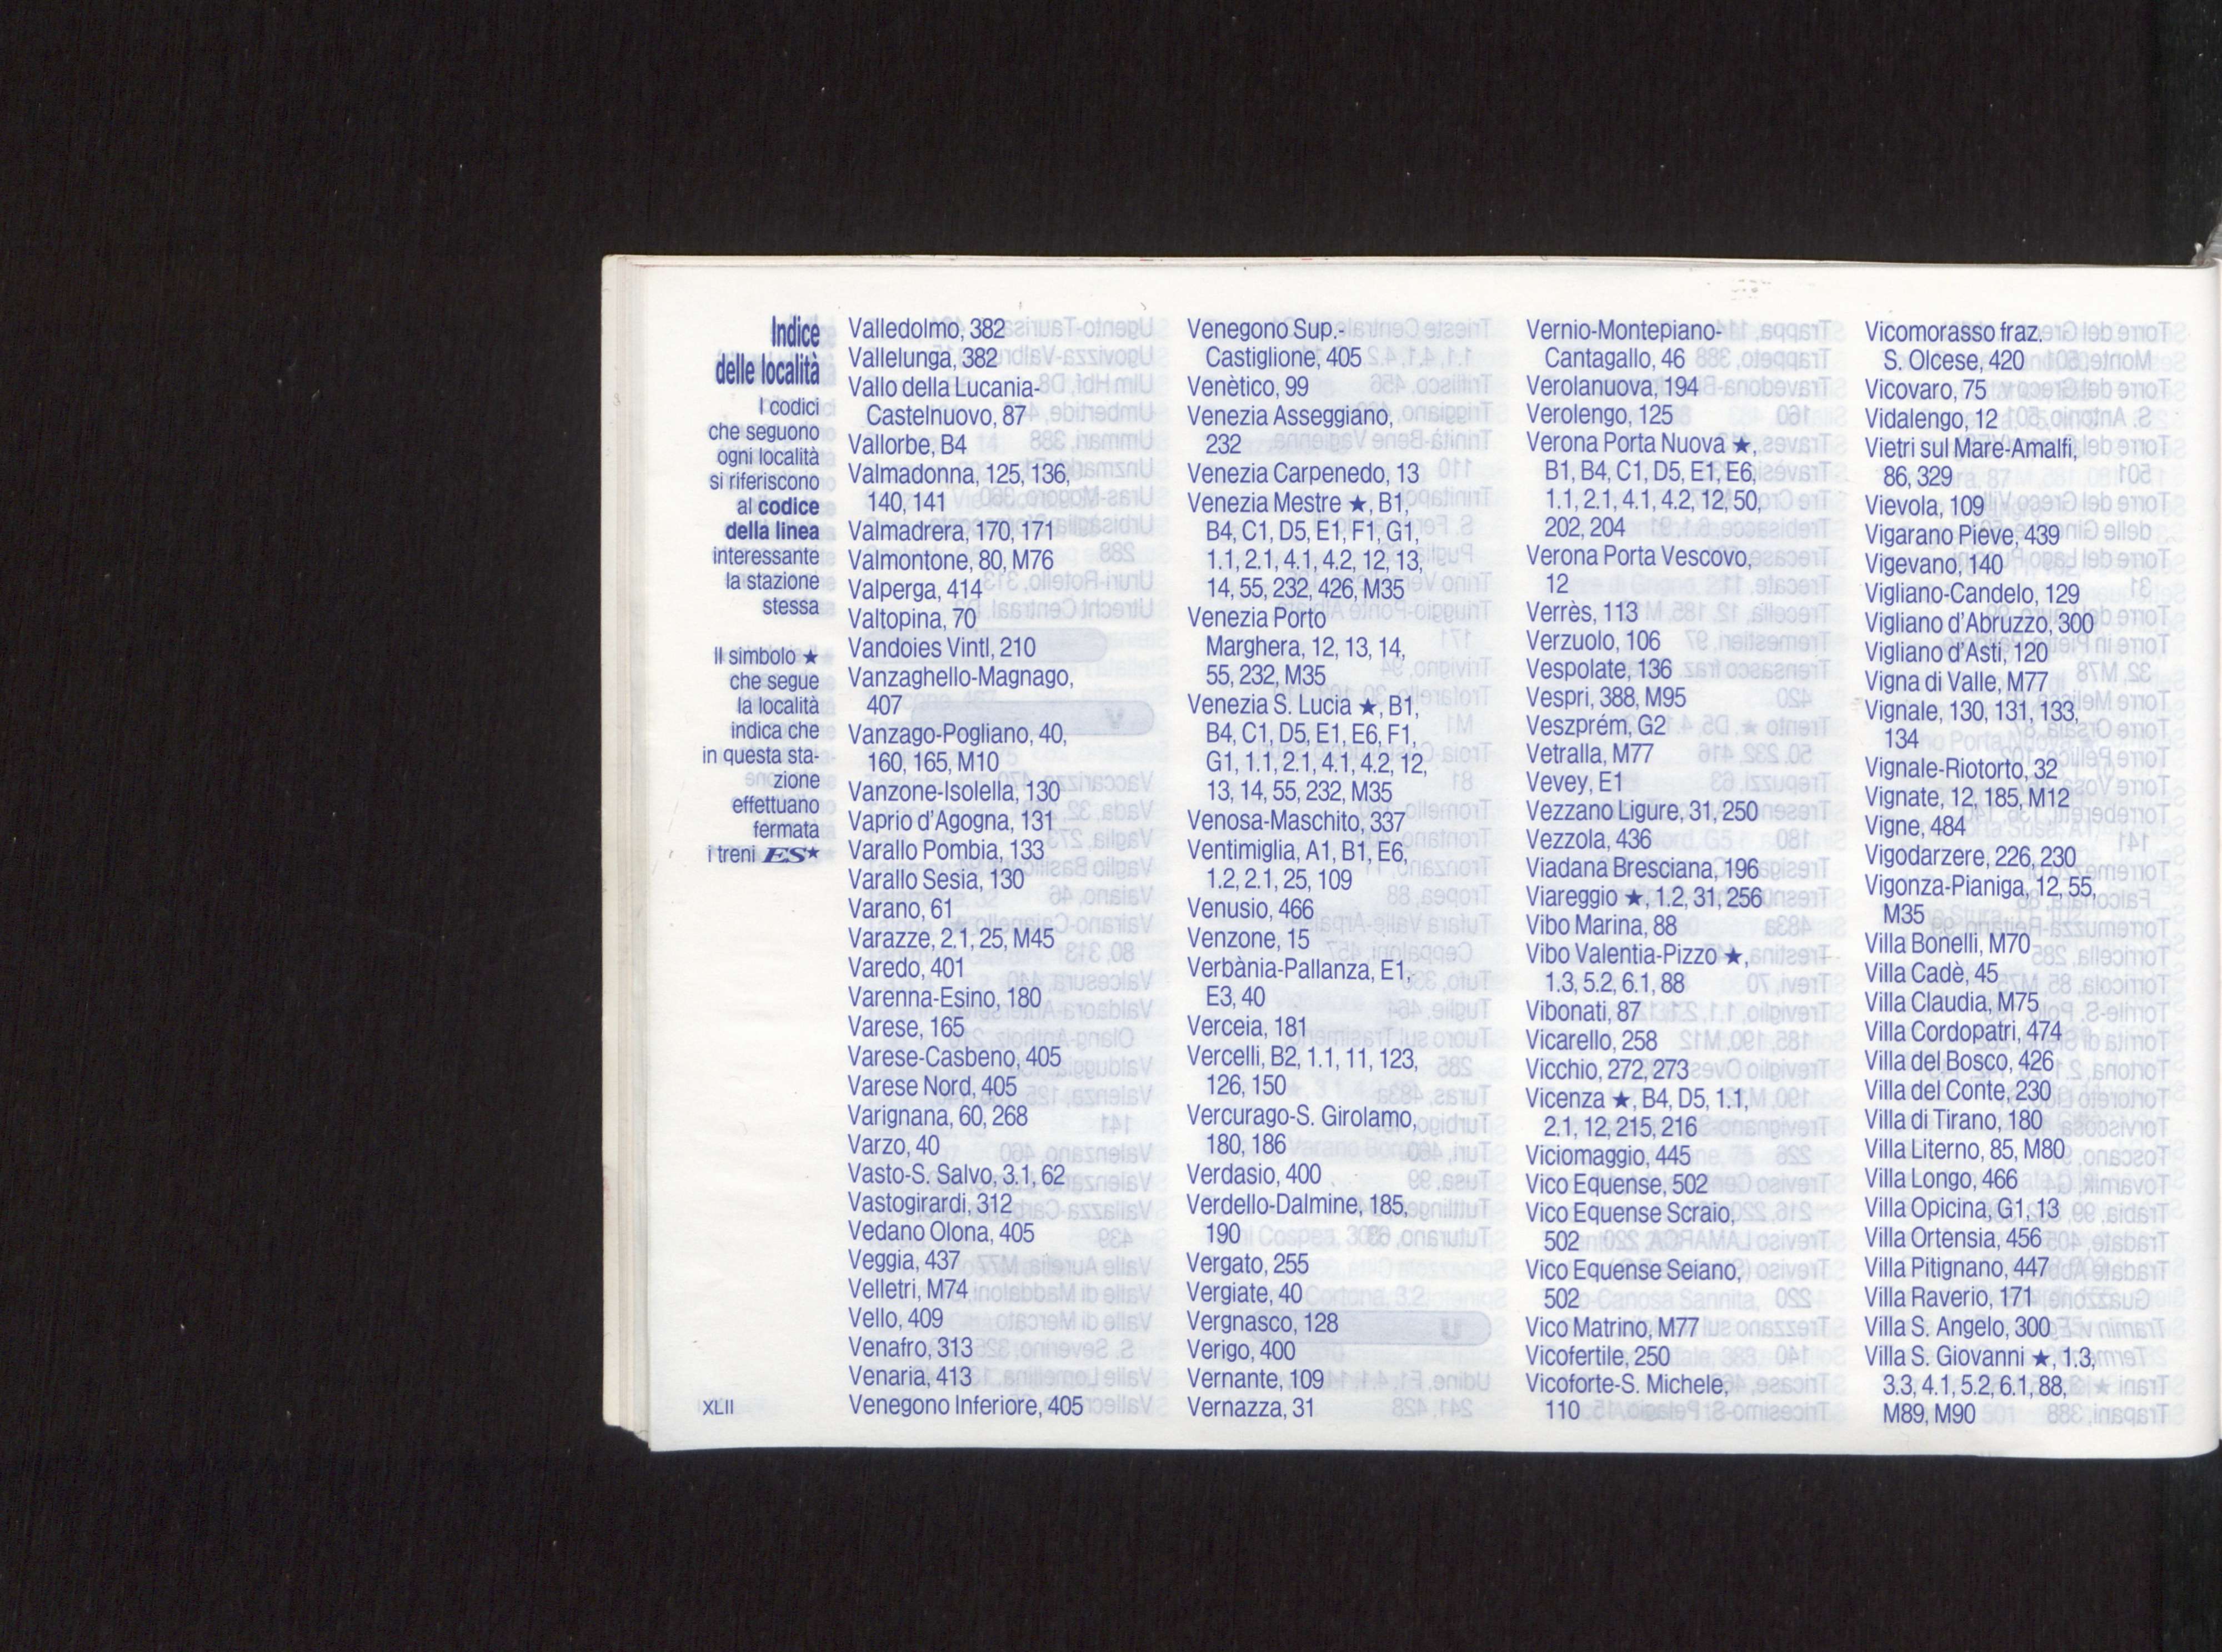 Indice
delle località
I codici
che seguono
ogni località
si riferiscono
al codice
della linea
interessante
la stazione
stessa
Il simbolo ★
che segue
la località
indica che
in questa sta-
zione
effettuano
fermata
i treni ES★
XLII
Valledolmo, 382
Vallelunga, 382
Vallo della Lucania-
Castelnuovo, 87
Vallorbe, B4
Valmadonna, 125, 136,
140, 141
Valmadrera, 170, 171
Valmontone, 80, M76
Valperga, 414
Valtopina, 70
Vandoies Vintl, 210
Vanzaghello-Magnago,
407
Vanzago-Pogliano, 40,
160, 165, M10
Vanzone-Isolella, 130
Vaprio d'Agogna, 131
Varallo Pombia, 133
Varallo Sesia, 130
Varano, 61
Varazze, 2.1, 25, M45
Varedo, 401
Varenna-Esino, 180
Varese, 165
Varese-Casbeno, 405
Varese Nord, 405
Varignana, 60, 268
Varzo, 40
Vasto-S. Salvo, 3.1, 62
Vastogirardi, 312
Vedano Olona, 405
Veggia, 437
Velletri, M74
Vello, 409
Venafro, 313
Venaria, 413
Venegono Inferiore, 405
Venegono Sup.-
Castiglione, 405
Venètico, 99
Venezia Asseggiano,
232
Venezia Carpenedo, 13
Venezia Mestre ★, B1,
B4, C1, D5, E1, F1, G1,
1.1, 2.1, 4.1, 4.2, 12, 13,
14, 55, 232, 426, M35
Venezia Porto
Marghera, 12, 13, 14,
55, 232, M35
Venezia S. Lucia ★, B1,
B4, C1, D5, E1, E6, F1,
G1, 1.1, 2.1, 4.1, 4.2, 12,
13, 14, 55, 232, M35
Venosa-Maschito, 337
Ventimiglia, A1, B1, E6,
1.2, 2.1, 25, 109
Venusio, 466
Venzone, 15
Verbània-Pallanza, E1,
E3, 40
Verceia, 181
Vercelli, B2, 1.1, 11, 123,
126, 150
Vercurago-S. Girolamo,
180, 186
Verdasio, 400
Verdello-Dalmine, 185,
190
Vergato, 255
Vergiate, 40
Vergnasco, 128
Verigo, 400
Vernante, 109
Vernazza, 31
Vernio-Montepiano-
Cantagallo, 46
Verolanuova, 194
Verolengo, 125
Verona Porta Nuova ★,
B1, B4, C1, D5, E1, E6,
1.1, 2.1, 4.1, 4.2, 12, 50,
202, 204
Verona Porta Vescovo,
12
Verrès, 113
Verzuolo, 106
Vespolate, 136
Vespri, 388, M95
Veszprém, G2
Vetralla, M77
Vevey, E1
Vezzano Ligure, 31, 250
Vezzola, 436
Viadana Bresciana, 196
Viareggio ★, 1.2, 31, 256
Vibo Marina, 88
Vibo Valentia-Pizzo ★,
1.3, 5.2, 6.1, 88
Vibonati, 87
Vicarello, 258
Vicchio, 272, 273
Vicenza ★, B4, D5, 1.1,
2.1, 12, 215, 216
Viciomaggio, 445
Vico Equense, 502
Vico Equense Scraio,
502
Vico Equense Seiano,
502
Vico Matrino, M77
Vicofertile, 250
Vicoforte-S. Michele,
110
Vicomorasso fraz.
S. Olcese, 420
Vicovaro, 75
Vidalengo, 12
Vietri sul Mare-Amalfi,
86, 329
Vievola, 109
Vigarano Pieve, 439
Vigevano, 140
Vigliano-Candelo, 129
Vigliano d'Abruzzo, 300
Vigliano d'Asti, 120
Vigna di Valle, M77
Vignale, 130, 131, 133,
134
Vignale-Riotorto, 32
Vignate, 12, 185, M12
Vigne, 484
Vigodarzere, 226, 230
Vigonza-Pianiga, 12, 55,
M35
Villa Bonelli, M70
Villa Cadè, 45
Villa Claudia, M75
Villa Cordopatri, 474
Villa del Bosco, 426
Villa del Conte, 230
Villa di Tirano, 180
Villa Literno, 85, M80
Villa Longo, 466
Villa Opicina, G1, 13
Villa Ortensia, 456
Villa Pitignano, 447
Villa Raverio, 171
Villa S. Angelo, 300
Villa S. Giovanni ★, 1.3,
3.3, 4.1, 5.2, 6.1, 88,
M89, M90